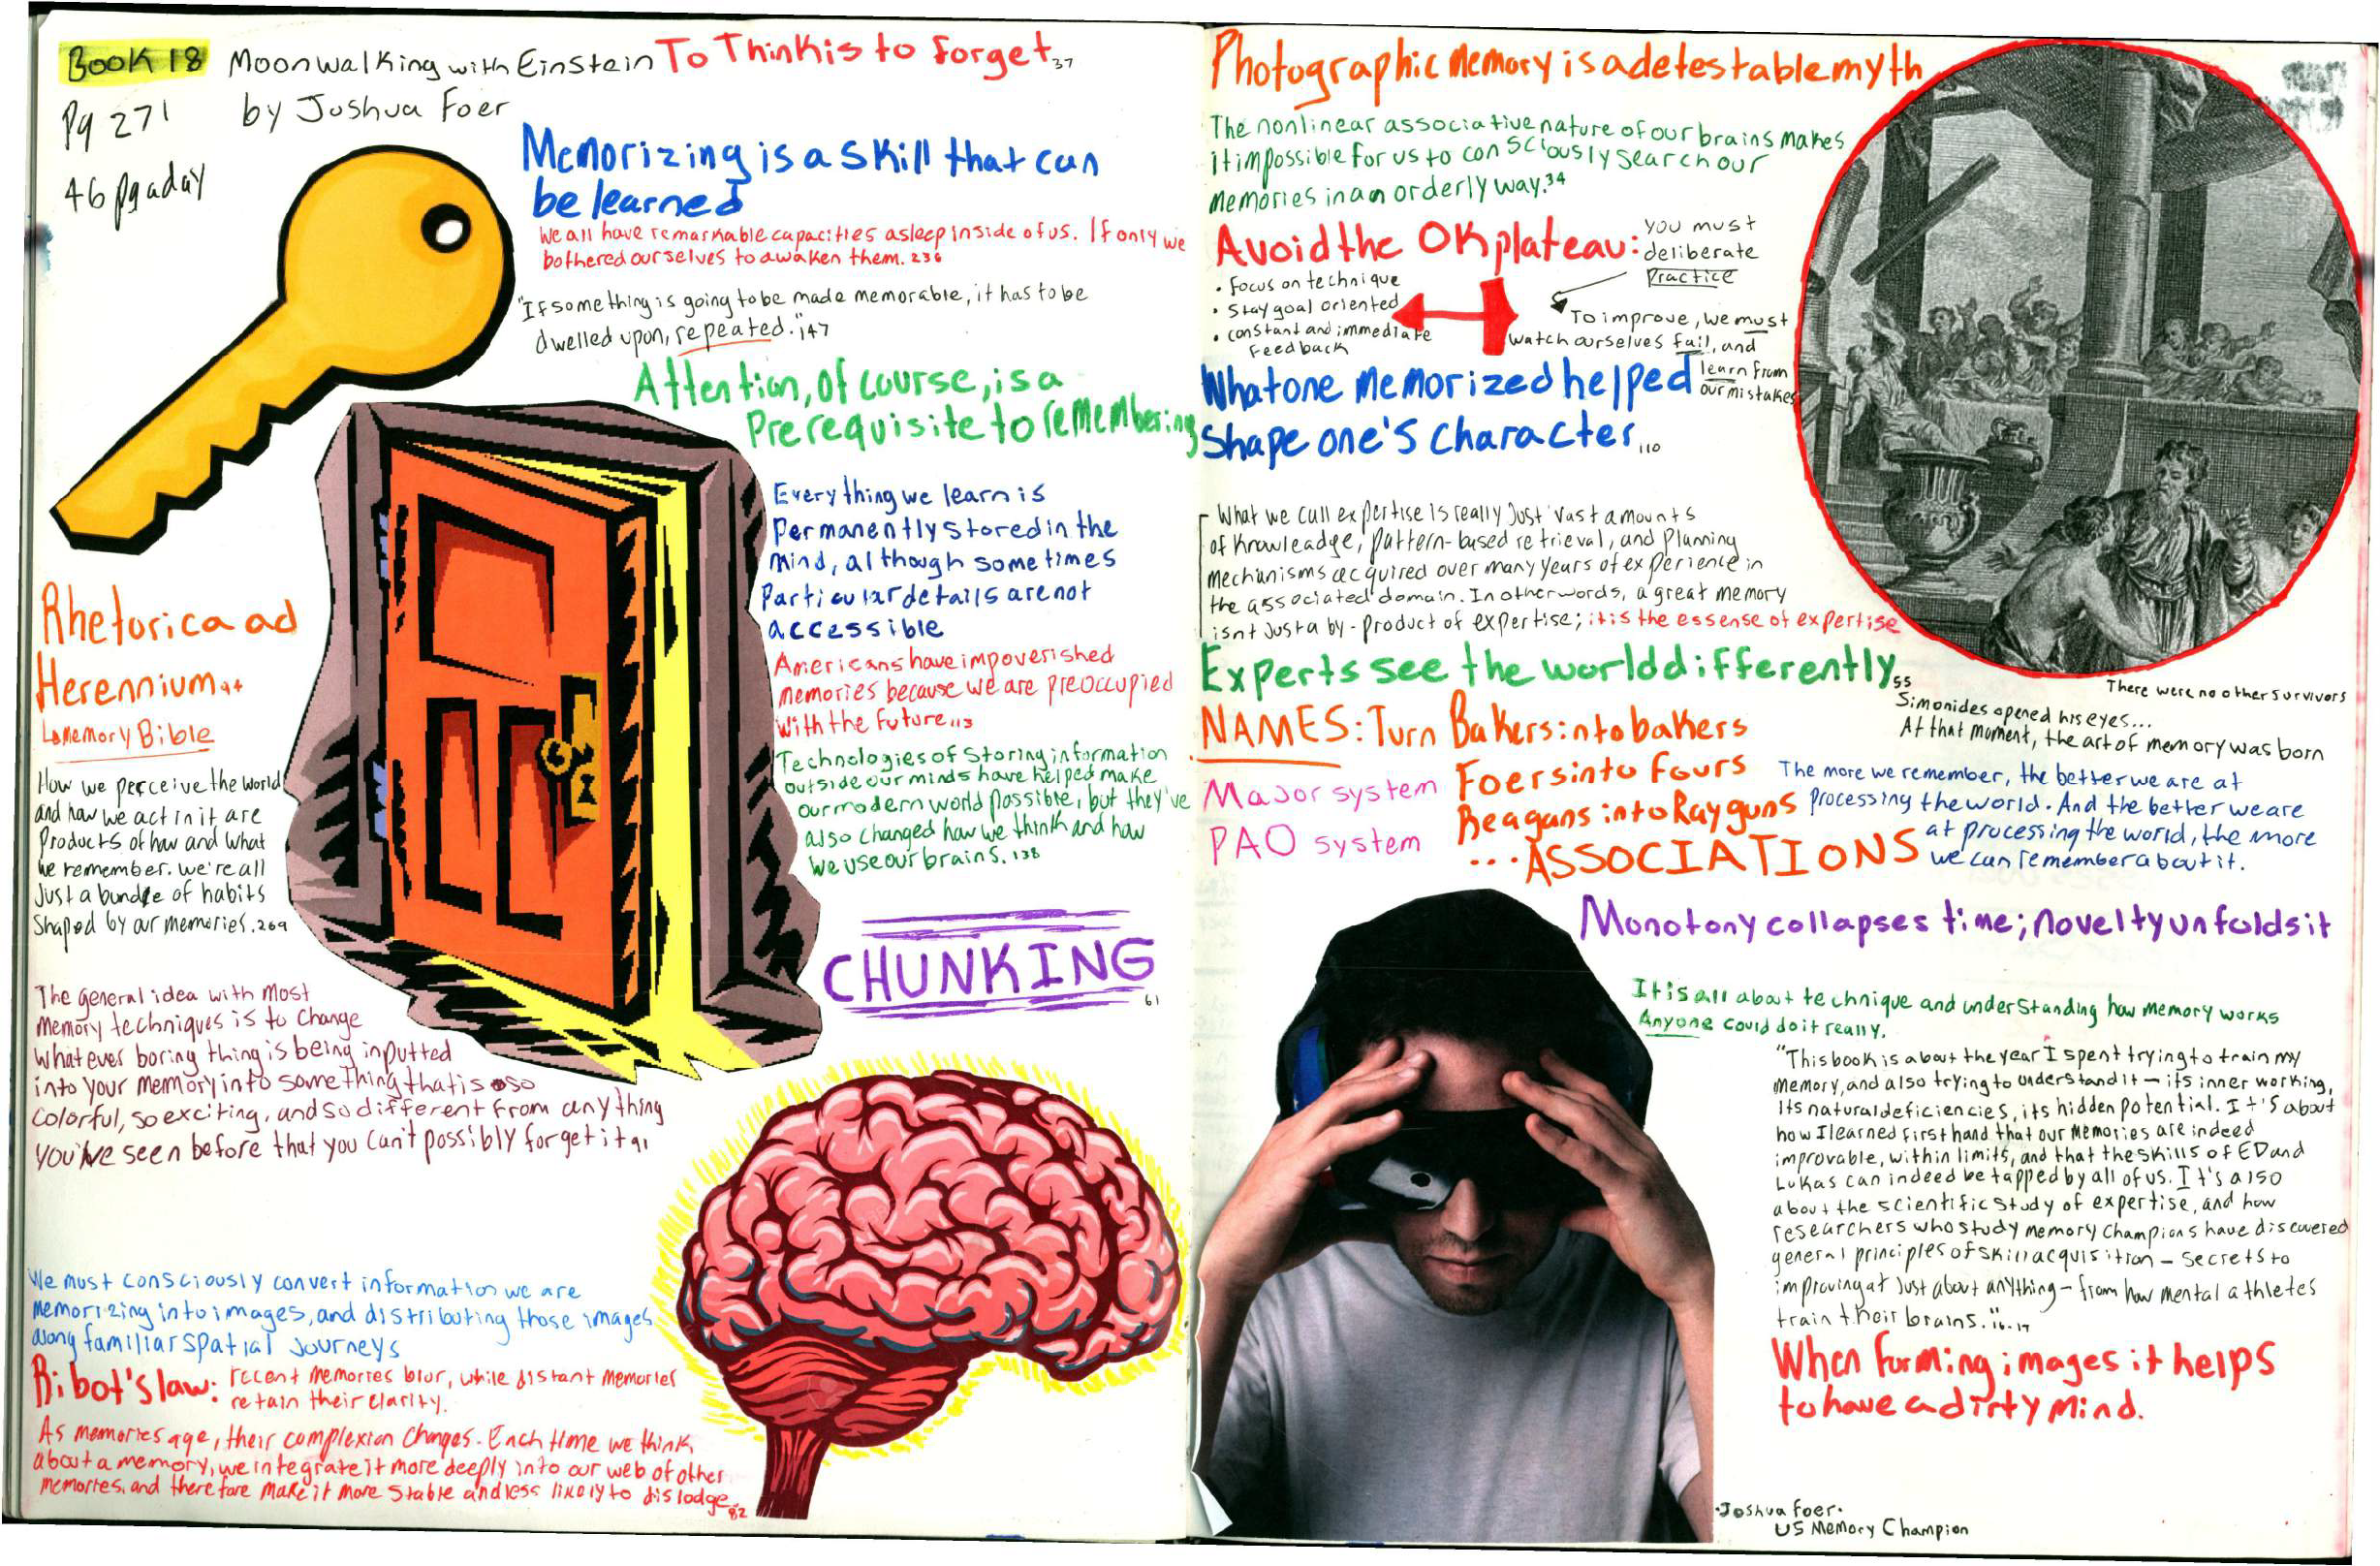 Book 18 Moonwalking with Einstein
by Joshua Foer
Pg 271
46 pg a day
To Think is to forget 37
Memorizing is a skill that can
be learned
We all have remarkable capacities asleep inside of us. If only we
bothered ourselves to awaken them. 236
"If something is going to be made memorable, it has to be
dwelled upon, repeated." 147
Attention, of course, is a
Prerequisite to remembering
Everything we learn is
permanently stored in the
mind, although sometimes
particular details are not
accessible
Americans have impoverished
memories because we are preoccupied
with the future 113
Technologies of storing information
outside our minds have helped make
our modern world possible, but they've
also changed how we think and how
we use our brains. 138
CHUNKING
61
Rhetorica ad
Herennium 94
Memory Bible
How we perceive the world
and how we act in it are
products of how and what
we remember. we're all
just a bundle of habits
shaped by our memories. 269
The general idea with most
memory techniques is to change
whatever boring thing is being inputted
into your memory into something that is so
colorful, so exciting, and so different from anything
you've seen before that you can't possibly forget it 91
We must consciously convert information we are
memorizing into images, and distributing those images
along familiar spatial journeys
Ribot's law: recent memories blur, while distant memories
retain their clarity.
As memories age, their complexion changes. Each time we think
about a memory, we integrate it more deeply into our web of other
memories, and therefore make it more stable and less likely to dislodge. 82
Photographic Memory is a detestable myth
The nonlinear associative nature of our brains makes
it impossible for us to consciously search our
memories in an orderly way. 34
Avoid the OK plateau:
you must
deliberate
practice
• focus on technique
• Stay goal oriented
• constant and immediate
feedback
To improve, we must
watch ourselves fail, and
learn from
our mistakes
What one memorized helped
shape one's character 110
What we call expertise is really just "vast amounts
of knowleadge, pattern-based retrieval, and planning
mechanisms acquired over many years of experience in
the associated domain. In other words, a great memory
isnt just a by-product of expertise; it is the essense of expertise
Experts see the world differently 55
There were no other survivors
Simonides opened his eyes...
At that moment, the art of memory was born
NAMES: Turn Bakers into bakers
Foers into fours
Reagans into Rayguns
...ASSOCIATIONS
Major system
PAO system
The more we remember, the better we are at
processing the world. And the better we are
at processing the world, the more
we can remember about it.
Monotony collapses time; novelty unfolds it
It is all about technique and understanding how memory works
Anyone could do it really.
"This book is about the year I spent trying to train my
memory, and also trying to understand it - its inner working,
its natural deficiencies, its hidden potential. It's about
how I learned first hand that our memories are indeed
improvable, within limits, and that the skills of ED and
Lukas can indeed be tapped by all of us. It's also
about the scientific study of expertise, and how
researchers who study memory champions have discovered
general principles of skill acquisition - secrets to
improving at just about anything - from how mental athletes
train their brains." 16-17
When forming images it helps
to have a dirty mind.
• Joshua Foer •
US Memory Champion